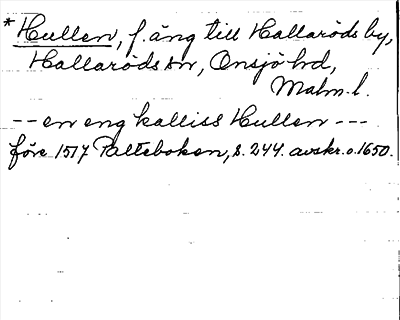 *Hullen, f. äng till Hallaröds by,
Hallaröds sn, Onsjö hd,
Malm. l.
-- en eng kalliss Hullen ---
före 1517 Palteboken, s. 244. avskr. o. 1650.